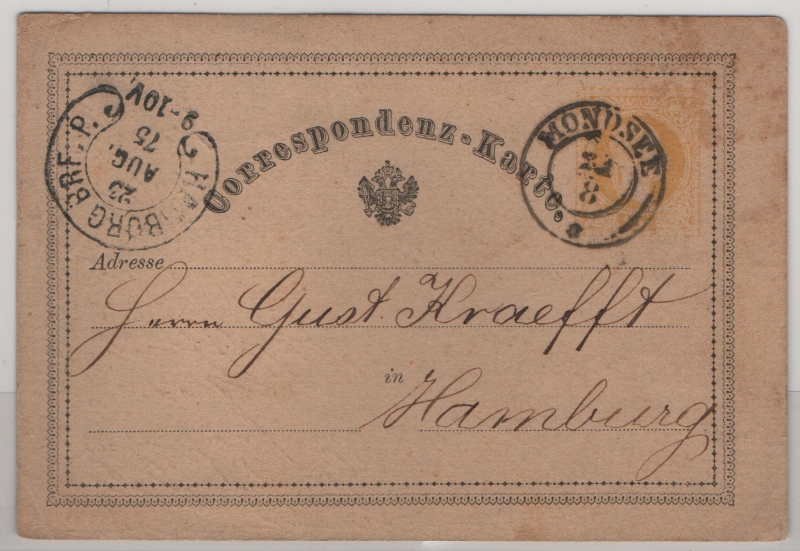 Correspondenz-Karte.
HAMBURG BRF. P.
23
AUG.
75
9-10V.
MONDSEE
8
Adresse
Herrn Gust. Kraefft
in
Hamburg